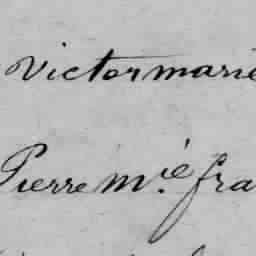 Victor marie
Pierre m.ie fra